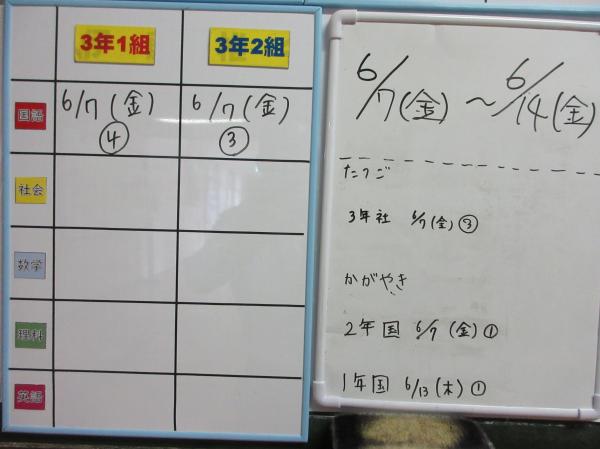 3年1組 3年2組
国語 6/7(金) 6/7(金)
④ ③
社会
数学
理科
英語
6/7(金)~6/14(金)
たんご
3年社 6/7(金)③
かがやき
2年国 6/7(金)①
1年国 6/13(木)①